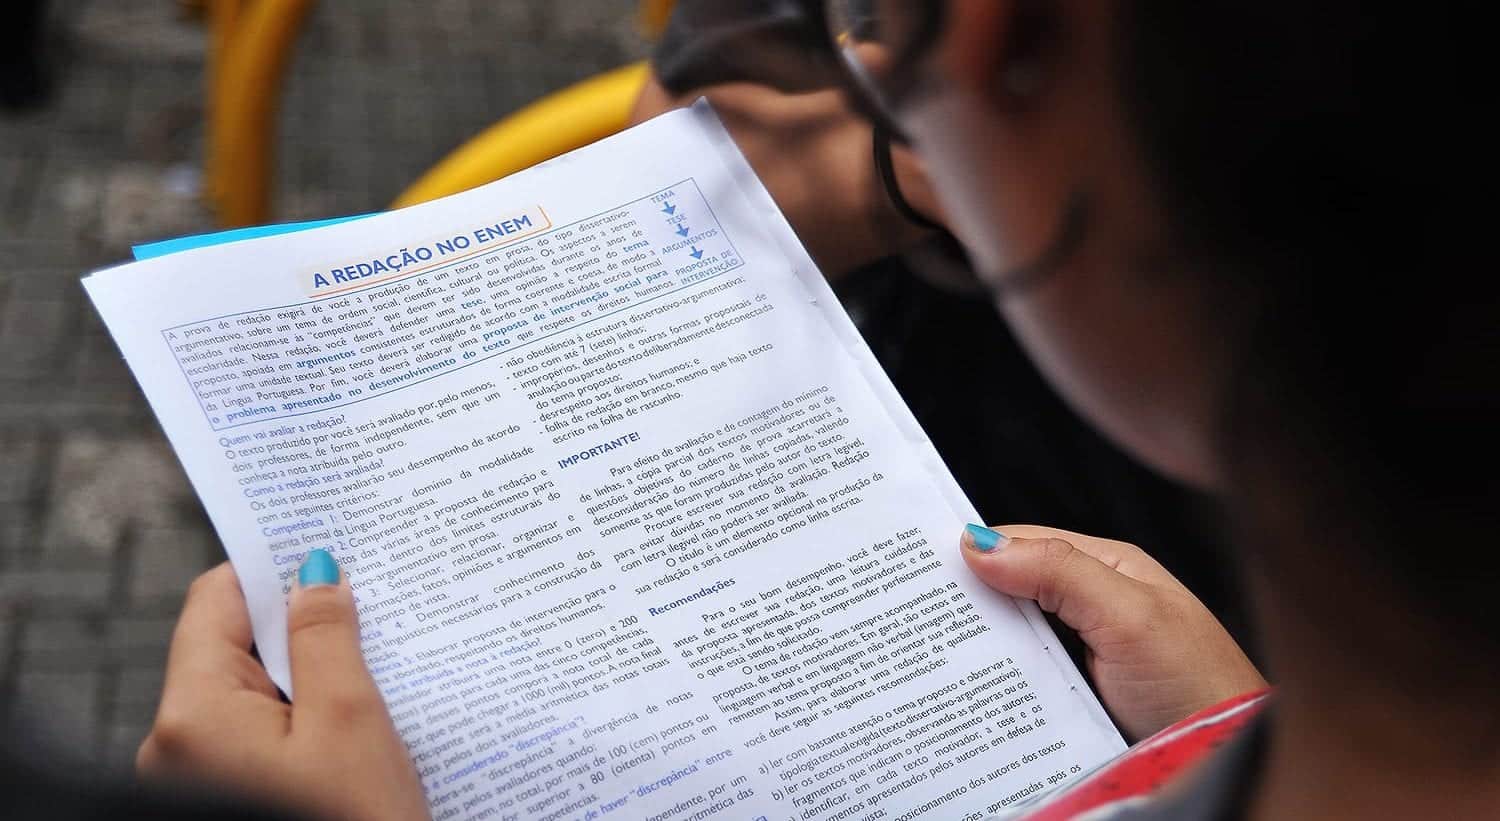 A REDAÇÃO NO ENEM
A prova de redação exigirá de você a produção de um texto em prosa, do tipo dissertativo-
argumentativo, sobre um tema de ordem social, científica, cultural ou política. Os aspectos a serem
avaliados relacionam-se às "competências" que devem ter sido desenvolvidas durante os anos de
escolaridade. Nessa redação, você deverá defender uma tese, uma opinião a respeito do tema
proposto, apoiada em argumentos consistentes estruturados de forma coerente e coesa, de modo a
formar uma unidade textual. Seu texto deverá ser redigido de acordo com a modalidade escrita formal
da Língua Portuguesa. Por fim, você deverá elaborar uma proposta de intervenção social para
o problema apresentado no desenvolvimento do texto que respeite os direitos humanos.
TEMA
TESE
ARGUMENTOS
PROPOSTA DE
INTERVENÇÃO
Quem vai avaliar a redação?
O texto produzido por você será avaliado por, pelo menos,
dois professores, de forma independente, sem que um
conheça a nota atribuída pelo outro.
Como a redação será avaliada?
Os dois professores avaliarão seu desempenho de acordo
com os seguintes critérios:
Competência 1: Demonstrar domínio da modalidade
escrita formal da Língua Portuguesa.
2: Compreender a proposta de redação e
das várias áreas de conhecimento para
tema, dentro dos limites estruturais do
-argumentativo em prosa.
3: Selecionar, relacionar, organizar e
informações, fatos, opiniões e argumentos em
um ponto de vista.
4: Demonstrar conhecimento dos
linguísticos necessários para a construção da
5: Elaborar proposta de intervenção para o
abordado, respeitando os direitos humanos.
será atribuída a nota à redação?
avaliador atribuirá uma nota entre 0 (zero) e 200
pontos para cada uma das cinco competências,
desses pontos comporá a nota total de cada
que pode chegar a 1000 (mil) pontos. A nota final
participante será a média aritmética das notas totais
pelos dois avaliadores.
é considerado "discrepância"?
"discrepância" a divergência de notas
pelos avaliadores quando:
no total, por mais de 100 (cem) pontos ou
for superior a 80 (oitenta) pontos em
competências.
de haver "discrepância" entre
independente, por um
aritmética das
- não obediência à estrutura dissertativo-argumentativa;
- texto com até 7 (sete) linhas;
- impropérios, desenhos e outras formas propositais de
anulação ou parte do texto deliberadamente desconectada
do tema proposto;
- desrespeito aos direitos humanos; e
- folha de redação em branco, mesmo que haja texto
escrito na folha de rascunho.
IMPORTANTE!
Para efeito de avaliação e de contagem do mínimo
de linhas, a cópia parcial dos textos motivadores ou de
questões objetivas do caderno de prova acarretará a
desconsideração do número de linhas copiadas, valendo
somente as que foram produzidas pelo autor do texto.
Procure escrever sua redação com letra legível,
para evitar dúvidas no momento da avaliação. Redação
com letra ilegível não poderá ser avaliada.
O título é um elemento opcional na produção da
sua redação e será considerado como linha escrita.
Recomendações
Para o seu bom desempenho, você deve fazer,
antes de escrever sua redação, uma leitura cuidadosa
da proposta apresentada, dos textos motivadores e das
instruções, a fim de que possa compreender perfeitamente
o que está sendo solicitado.
O tema de redação vem sempre acompanhado, na
proposta, de textos motivadores. Em geral, são textos em
linguagem verbal e em linguagem não verbal (imagem) que
remetem ao tema proposto a fim de orientar sua reflexão.
Assim, para elaborar uma redação de qualidade,
você deve seguir as seguintes recomendações:
a) ler com bastante atenção o tema proposto e observar a
tipologia textual exigida (texto dissertativo-argumentativo);
b) ler os textos motivadores, observando as palavras ou os
fragmentos que indicam o posicionamento dos autores;
identificar, em cada texto motivador, a tese e os
apresentados pelos autores em defesa de
vista;
posicionamento dos autores dos textos
apresentadas após os